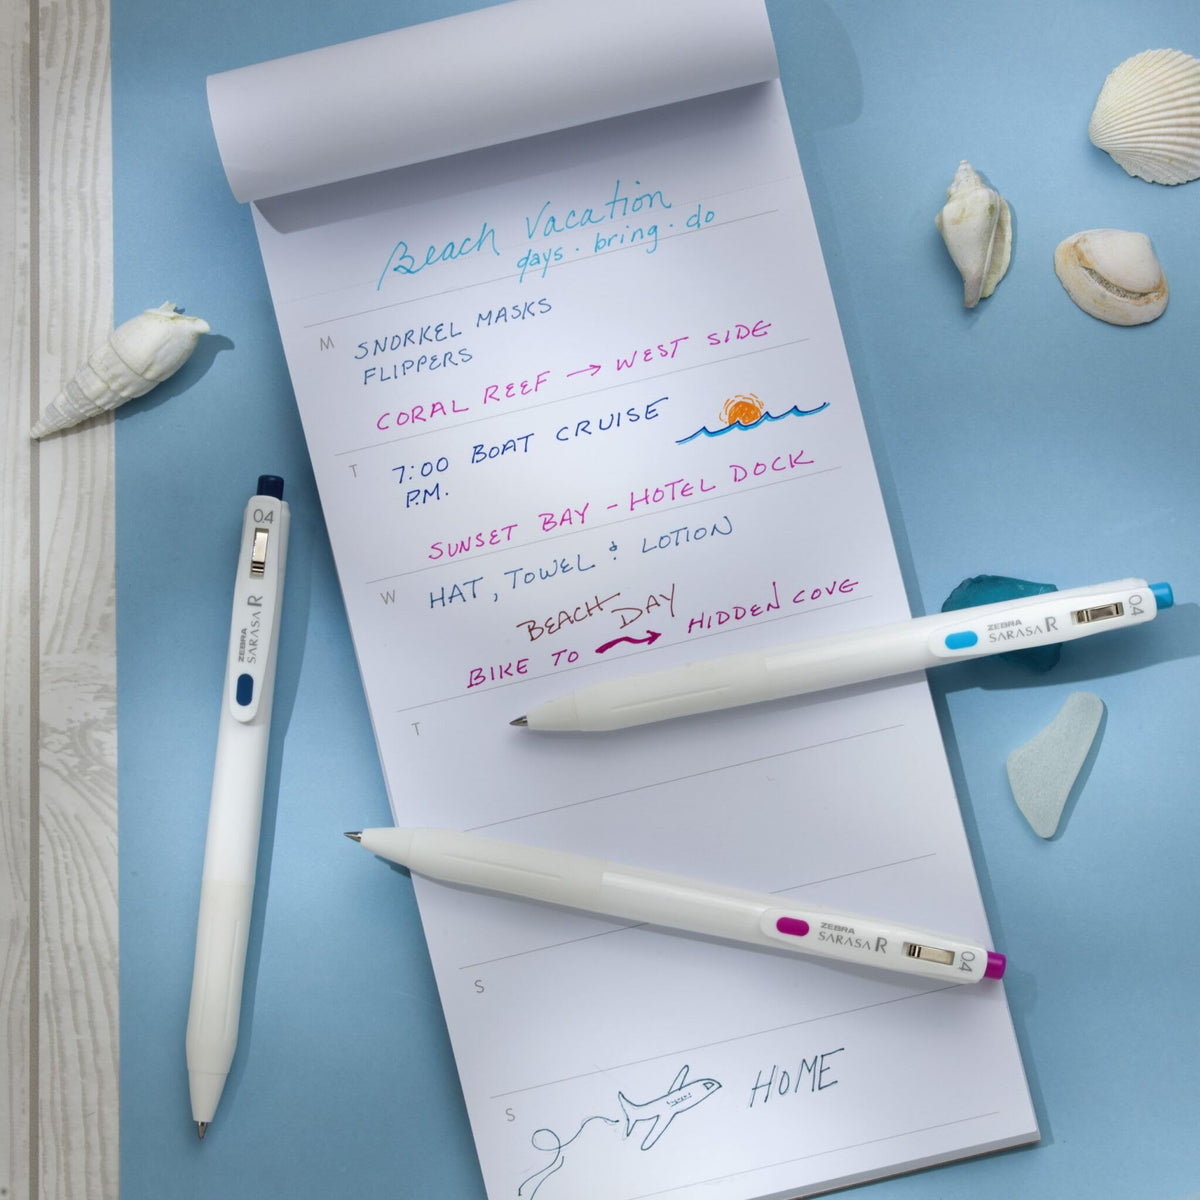 Beach Vacation
days · bring · do
M
SNORKEL MASKS
FLIPPERS
CORAL REEF → WEST SIDE
T
7:00 BOAT CRUISE
P.M.
SUNSET BAY - HOTEL DOCK
W
HAT, TOWEL & LOTION
BEACH DAY
BIKE TO → HIDDEN COVE
T
S
S
HOME
0.4
ZEBRA
SARASA R
0.4
ZEBRA
SARASA R
0.4
ZEBRA
SARASA R